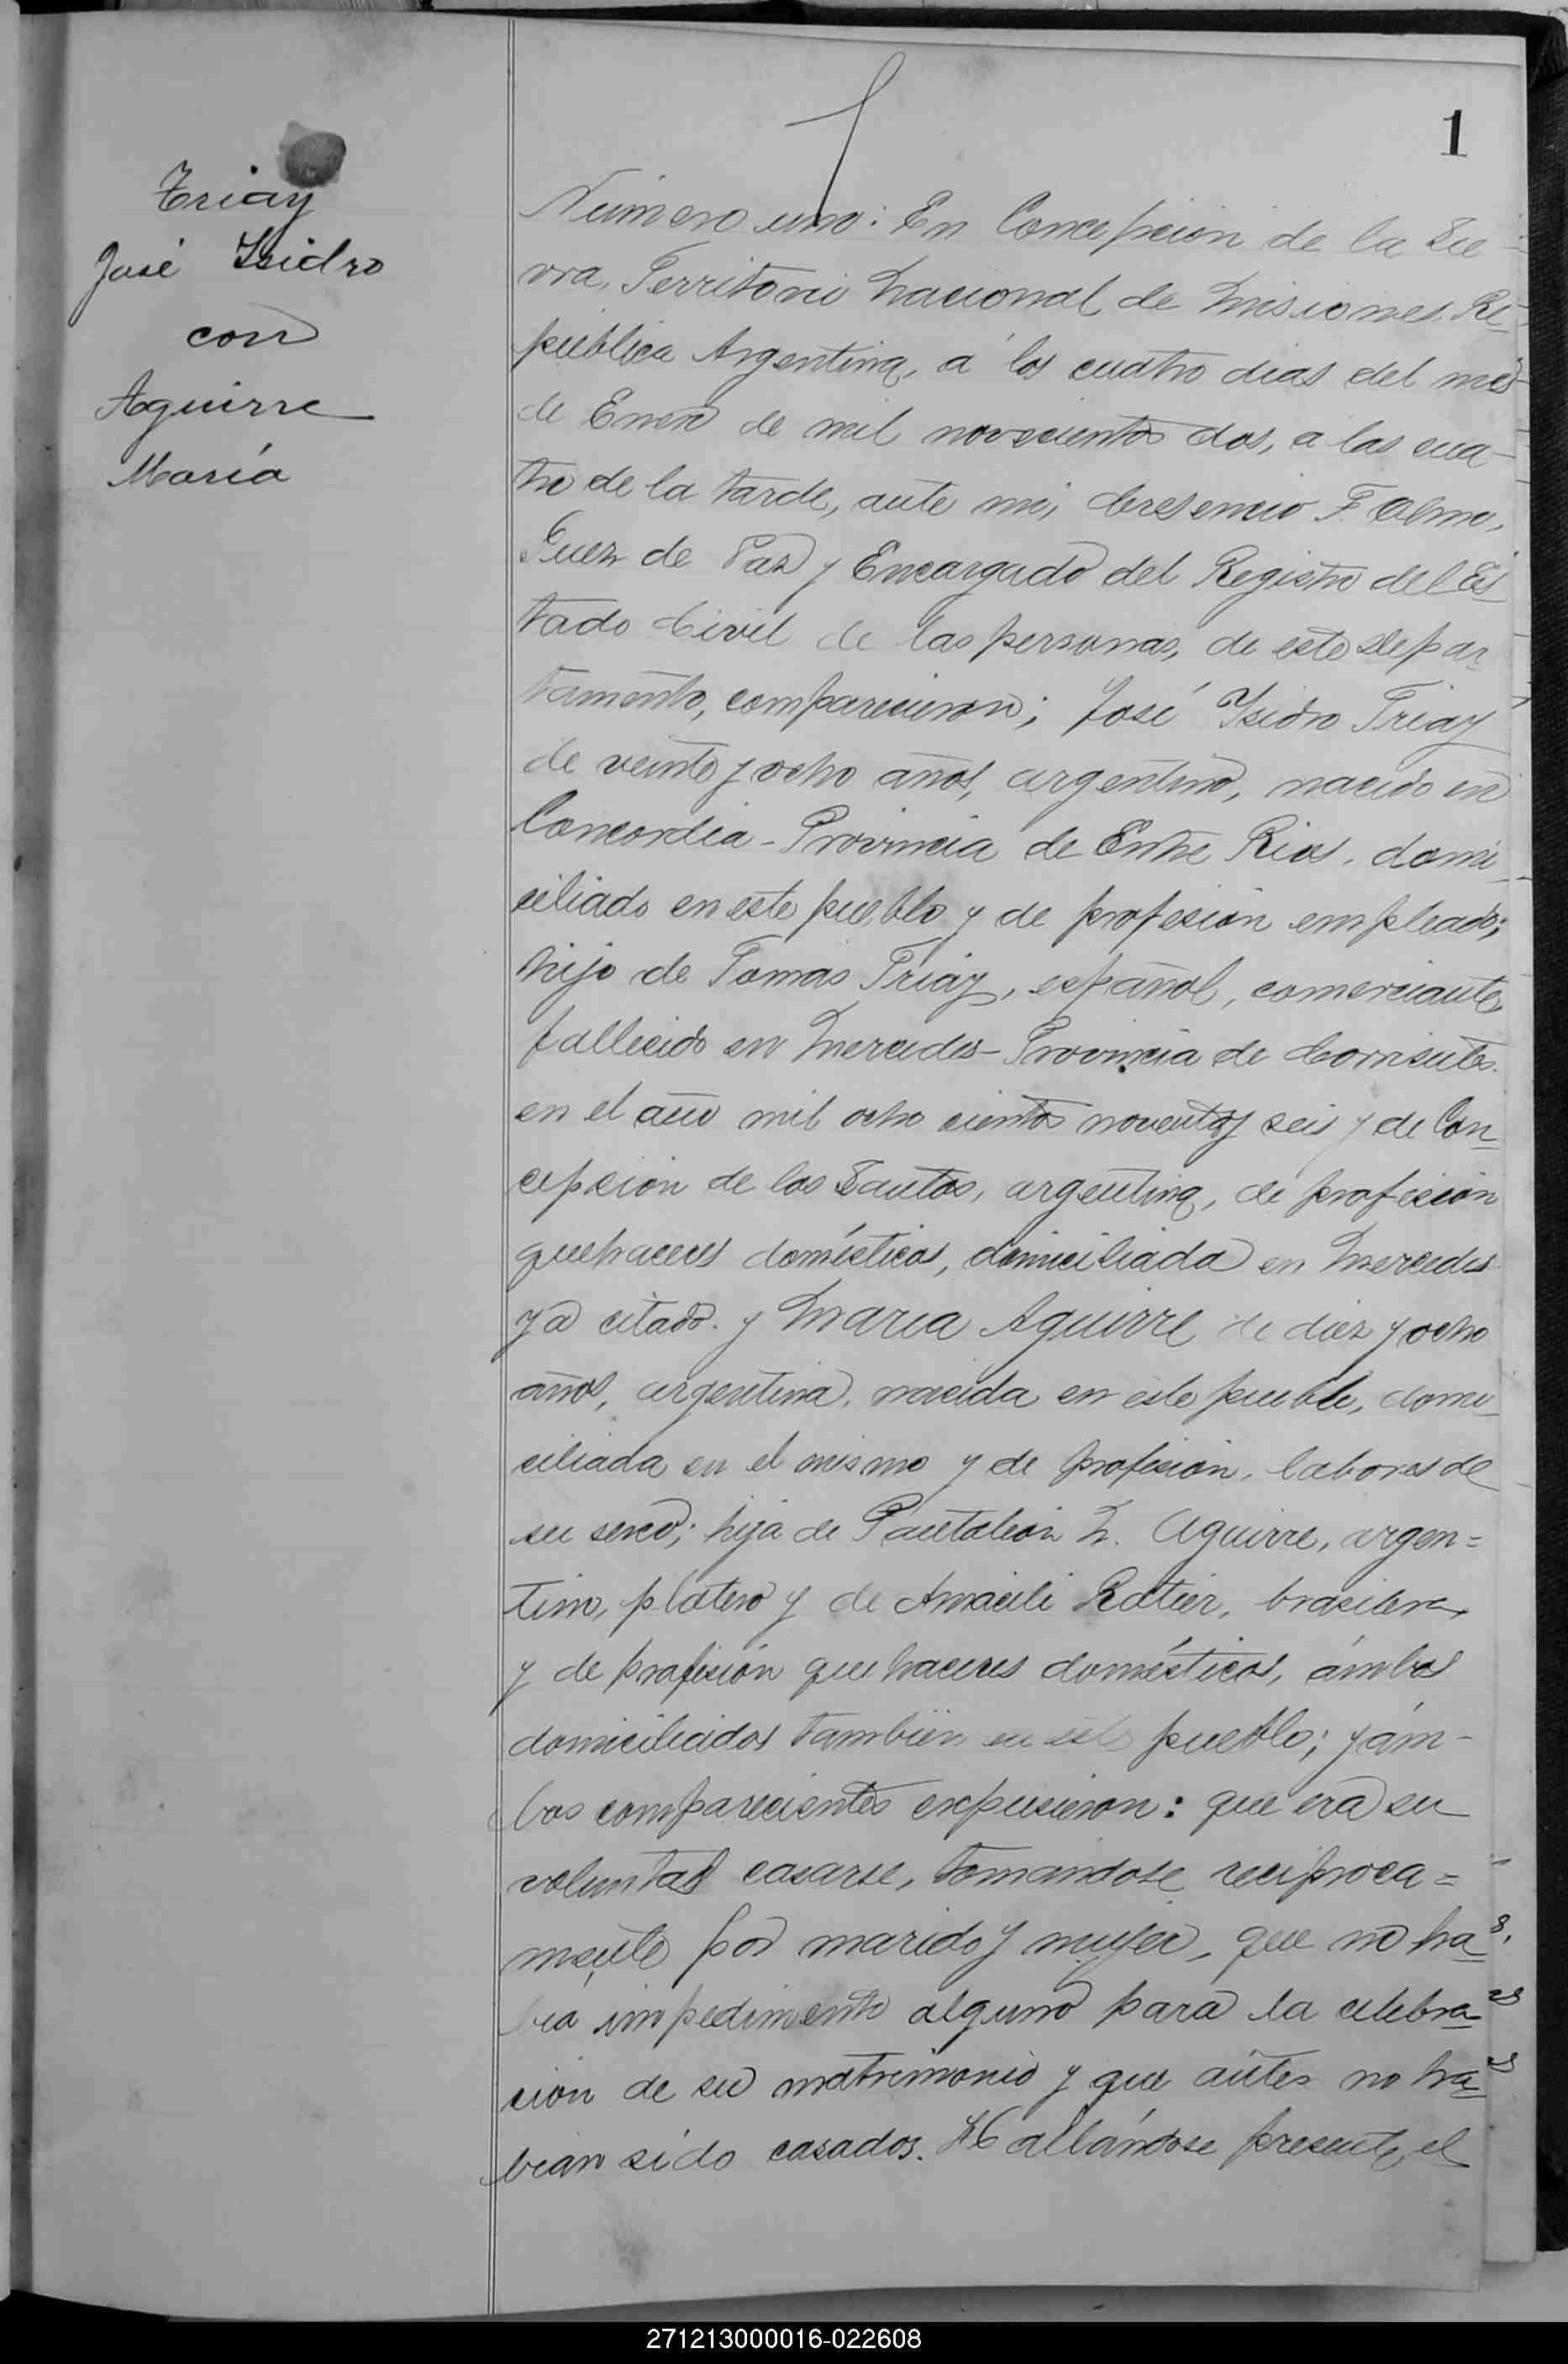 1
Triay
José Isidro
con
Aguirre
María
Número uno: En Concepcion de la Sie-
rra, Territorio Nacional de Misiones Re-
pública Argentina, á los cuatro dias del mes
de Enero de mil novecientos dos, a las cua-
tro de la tarde, ante mi, Cresencio F.
Juez de Paz y Encargado del Registro del Es-
tado Civil de las personas, de este Depar-
tamento, comparecieron; José Ysidro Triay
de veinte y ocho años, argentino, nacido en
Concordia - Provincia de Entre Rios, domi-
ciliado en este pueblo y de profesión empleado;
hijo de Tomas Triay, español, comerciante,
fallecido en Mercedes - Provincia de Corrientes
en el año mil ocho cientos noventa y seis y de Con-
cepcion de los Santos, argentina, de profesion
quehaceres domésticos, domiciliada en Mercedes
ya citado. y Maria Aguirre de diez y ocho
años, argentina, nacida en este pueblo, domi-
ciliada en el mismo y de profesion, labores de
su sexo; hija de Pantaleón Aguirre, argen=
tino, platero y de Ratier, brasilera,
y de profesión quehaceres domésticos, ámbos
domiciliados también en este pueblo; y ám-
bos comparecientes expusieron: que era su
voluntad casarse, tomandose reciproca=
mente por marido y mujer, que no ha-
bia impedimento alguno para la celebra-
cion de su matrimonio y que ántes no ha-
bian sido casados. Hallándose presente, el
271213000016-022608